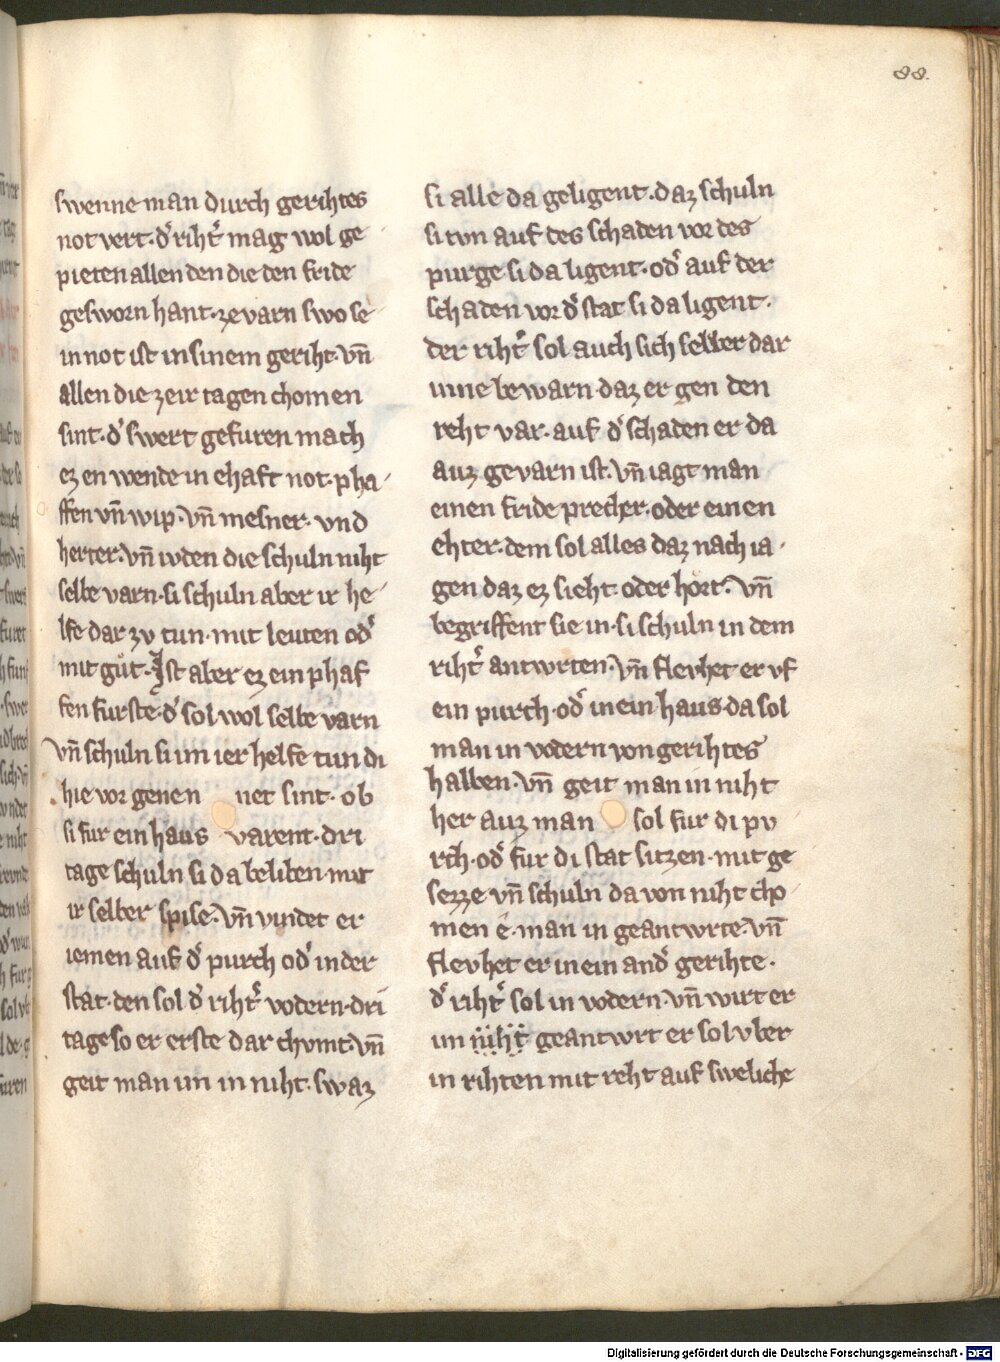 88.
swenne man durch gerihtes
not vert· d᷑ riht᷑ mag wol ge
pieten allen den die den fride
gesworn hant· ze varn swo se
in not ist in sinem geriht· vn̄
allen die ze ir tagen chomen
sint· d᷑ swert gefuren mach
ez en wende in ehaft not· pha
ffen vn̄ wip· vn̄ mesner· vnd
herter· vn̄ ivden die schuln niht
selbe varn· si schuln aber ir he
lfe dar zv tun· mit leuten od᷑
mit gůt· Ist aber ez ein phaf
fen furste· d᷑ sol wol selbe varn
vn̄ schuln si im ier helfe tun di
hie vor genen net sint· ob
si fur ein haus varent· dri
tage schuln si da beliben· mit
ir selber spise· vn̄ vindet er
iemen auf d᷑ purch od᷑ in der
stat· den sol d᷑ riht᷑ vodern· dri
tage so er erste dar chvmt· vn̄
geit man im in niht· swaz
si alle da geligent· daz schuln
si tvn auf des schaden vor des
purge si da ligent· od᷑ auf der
schaden vor d᷑ stat si da ligent·
der riht᷑ sol auch sich selber dar
inne bewarn· daz er gen den
reht var· auf d᷑ schaden er da
auz gevarn ist· vn̄ iagt man
einen fride precher· oder einen
ehter· dem sol alles daz nach ia
gen daz ez sieht· oder hort· vn̄
begriffent sie in· si schuln in dem
riht᷑ antwrten· vn̄ flevhet er vf
ein purch· od᷑ in ein haus· da sol
man in vodern von gerihtes
halben· vn̄ geit man in niht
her auz man sol fur di pv
rch· od᷑ fur di stat sitzen· mit ge
sezze vn̄ schuln da von niht cho
men e· man in geantwrte· vn̄
flevhet er in ein and᷑ gerihte·
d᷑ riht᷑ sol in vodern· vn̄ wirt er
im niht geantwrt er sol vber
in rihten mit reht auf sweliche
Digitalisierung gefördert durch die Deutsche Forschungsgemeinschaft - DFG